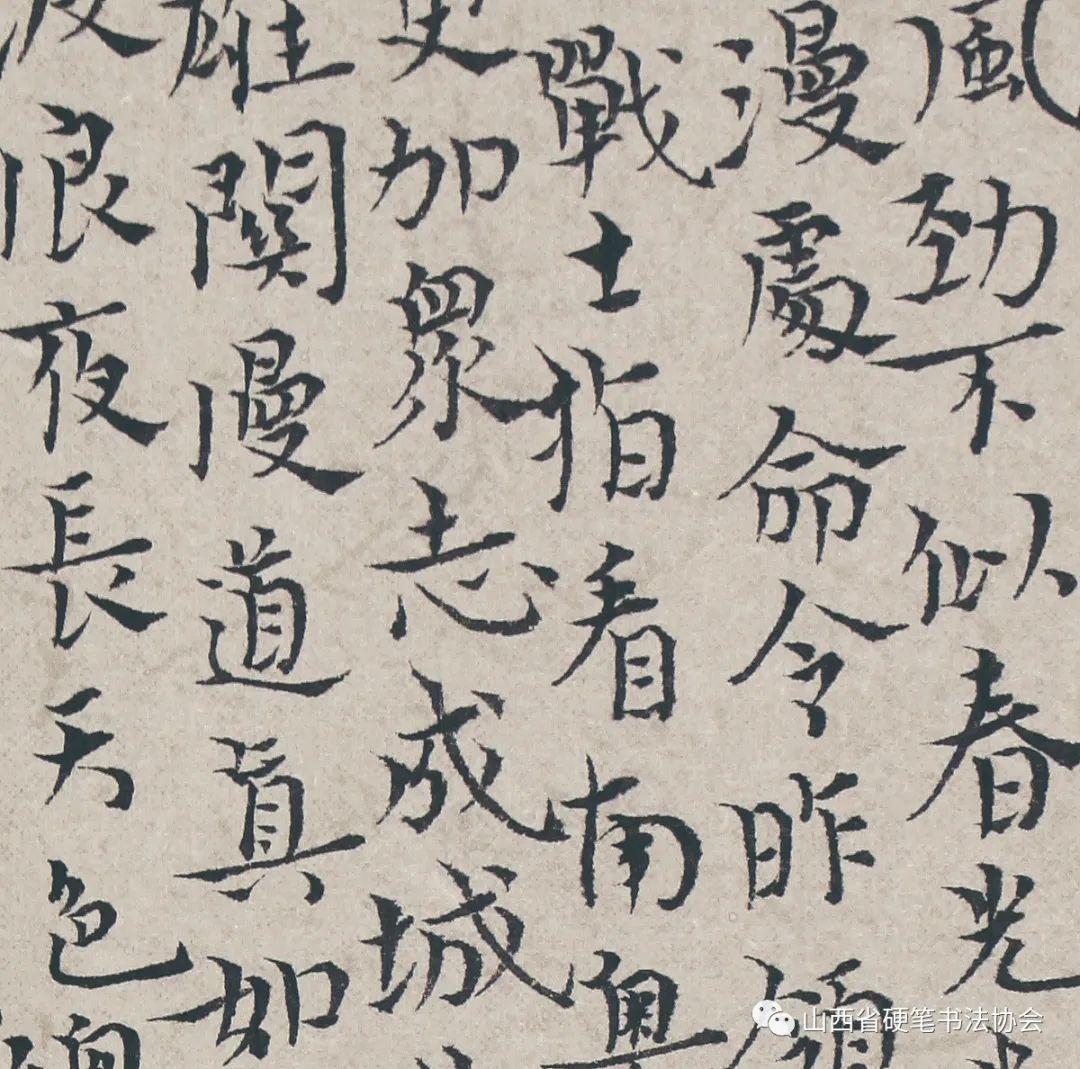 風勁不似春光
漫處命令昨頒
戰士指看南粵
更加衆志成城
雄關慢道真如
恨夜長天色
山西省硬笔书法协会